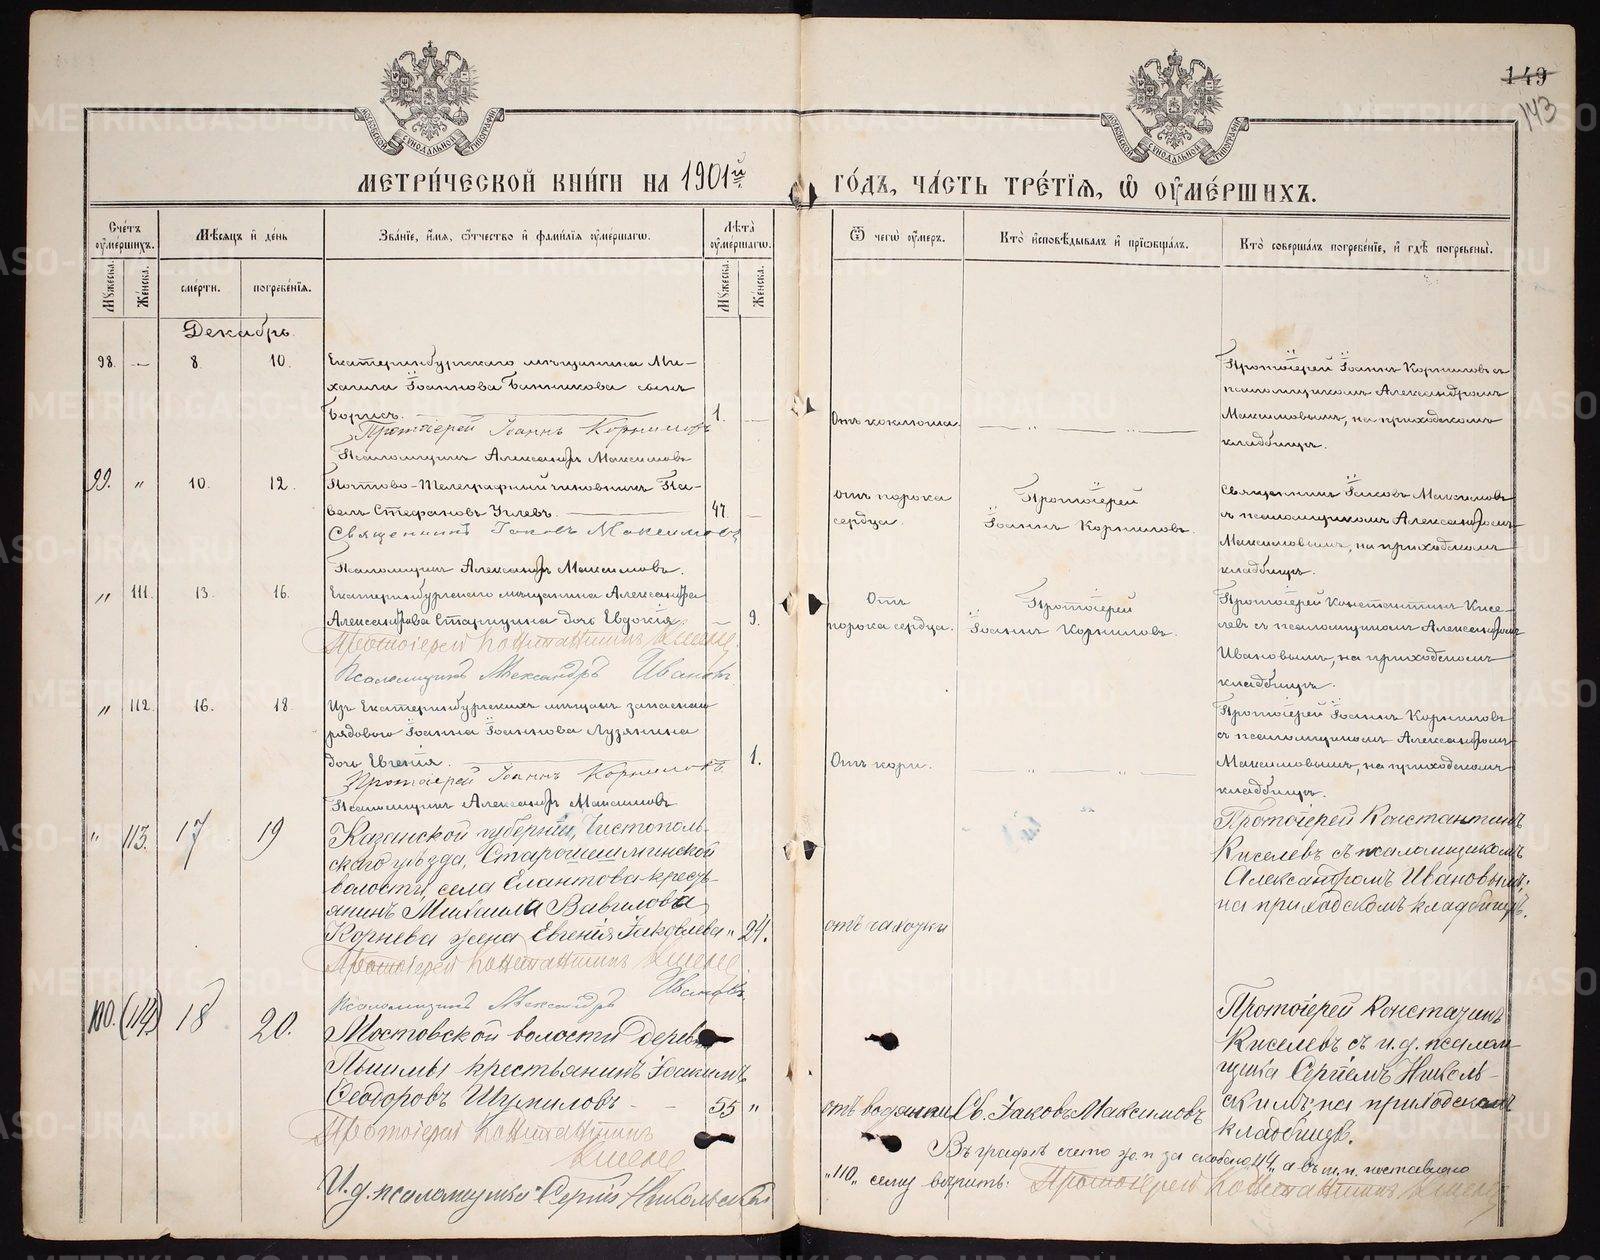 149
143
МОСКОВСКОЙ СѴНОДАЛЬНОЙ ТИПОГРАФІИ
МОСКОВСКОЙ СѴНОДАЛЬНОЙ ТИПОГРАФІИ
МЕТРИ́ЧЕСКОЙ КНИ́ГИ НА 1901й ГО́ДЪ, ЧА́СТЬ ТРЕ́ТІЯ, Ѡ҆ ОУ҆МЕ́РШИХЪ.
Сче́тъ оу҆ме́ршихъ.
Мꙋ́жеска.
Же́нска.
Мѣ́сяцъ и҆ де́нь
сме́рти.
погребе́нїя.
Зва́нїе, и҆́мя, ѻ҆́тчество и҆ фами́лїя оу҆ме́ршагѡ.
Лѣ́та оу҆ме́ршагѡ.
Мꙋ́жеска.
Же́нска.
Ѿ чегѡ̀ оу҆́меръ.
Кто̀ и҆сповѣ́дывалъ и҆ прїѡбща́лъ.
Кто̀ соверша́лъ погребе́нїе, и҆ гдѣ̀ погребены̀.
Декабрь
98. — 8. 10.
Екатеринбургскаго мѣщанина Ми-
хаила Іоаннова Банникова сынъ
Борисъ. 1. —
Протоіерей Іоаннъ Корнилов
Псаломщикъ Александръ Максимовъ
Отъ коклюша.
— „ — „ —
Протоіерей Іоаннъ Корниловъ съ
псаломщикомъ Александромъ
Максимовымъ, на приходскомъ
кладбищѣ.
99. „ 10. 12.
Почтово-Телеграфный чиновникъ Па-
велъ Стефановъ 47. —
Священникъ Іаковъ Максимовъ
Псаломщикъ Александръ Максимовъ.
отъ порока
сердца.
Протоіерей
Іоаннъ Корниловъ.
Священникъ Іаковъ Максимовъ
съ псаломщикомъ Александромъ
Максимовымъ, на приходскомъ
кладбищѣ.
„ 111. 13. 16.
Екатеринбургскаго мѣщанина Александра
Александрова Старицина дочь Евдокія — 9.
Протоіерей Константинъ Киселевъ
Псаломщикъ Александръ Ивановъ.
Отъ
порока сердца.
Протоіерей
Іоаннъ Корниловъ.
Протоіерей Константинъ Кисе-
левъ съ псаломщикомъ Александромъ
Ивановымъ, на приходскомъ
кладбищѣ.
„ 112. 16. 18.
Изъ Екатеринбургскихъ мѣщанъ запаснаго
рядового Іоанна Іоаннова Лузянина
дочь Евгенія. 1.
Протоіерей Іоаннъ Корниловъ
Псаломщикъ Александръ Максимовъ
Отъ кори.
— „ — „ —
Протоіерей Іоаннъ Корниловъ
съ псаломщикомъ Александромъ
Максимовымъ, на приходскомъ
кладбищѣ.
„ 113. 17 19
Казанской губерніи, Чистополь-
скаго уѣзда, Старошешминской
волости, села Елантова кресть-
янинъ Михаила Вавилова
Корнева жена Евгенія Іаковлева „ 24.
Протоіерей Константинъ Киселевъ
Псаломщикъ Александръ Ивановъ
отъ чахотки
Протоіерей Константинъ
Киселевъ съ псаломщикомъ
Александромъ Ивановымъ;
на приходскомъ кладбищѣ.
100. (114) 18 20.
Мостовской волости деревни
Пышмы крестьянинъ Іоакимъ
Ѳеодоровъ Шумиловъ 55 „
Протоіерей Константинъ
Киселевъ
И.д. псаломщика Сергій Никольскій
отъ водянки
Св. Іаковъ Максимовъ
Протоіерей Константинъ
Киселевъ съ и.д. псалом-
щика Сергіемъ Николь-
скимъ, на приходскомъ
кладбищѣ.
Въ графѣ счета ж.п. за скобено „114„ а въ м.п. поставлено
„110„ сему вѣрить. Протоіерей Константинъ Киселевъ
METRIKI.GASO-URAL.RU